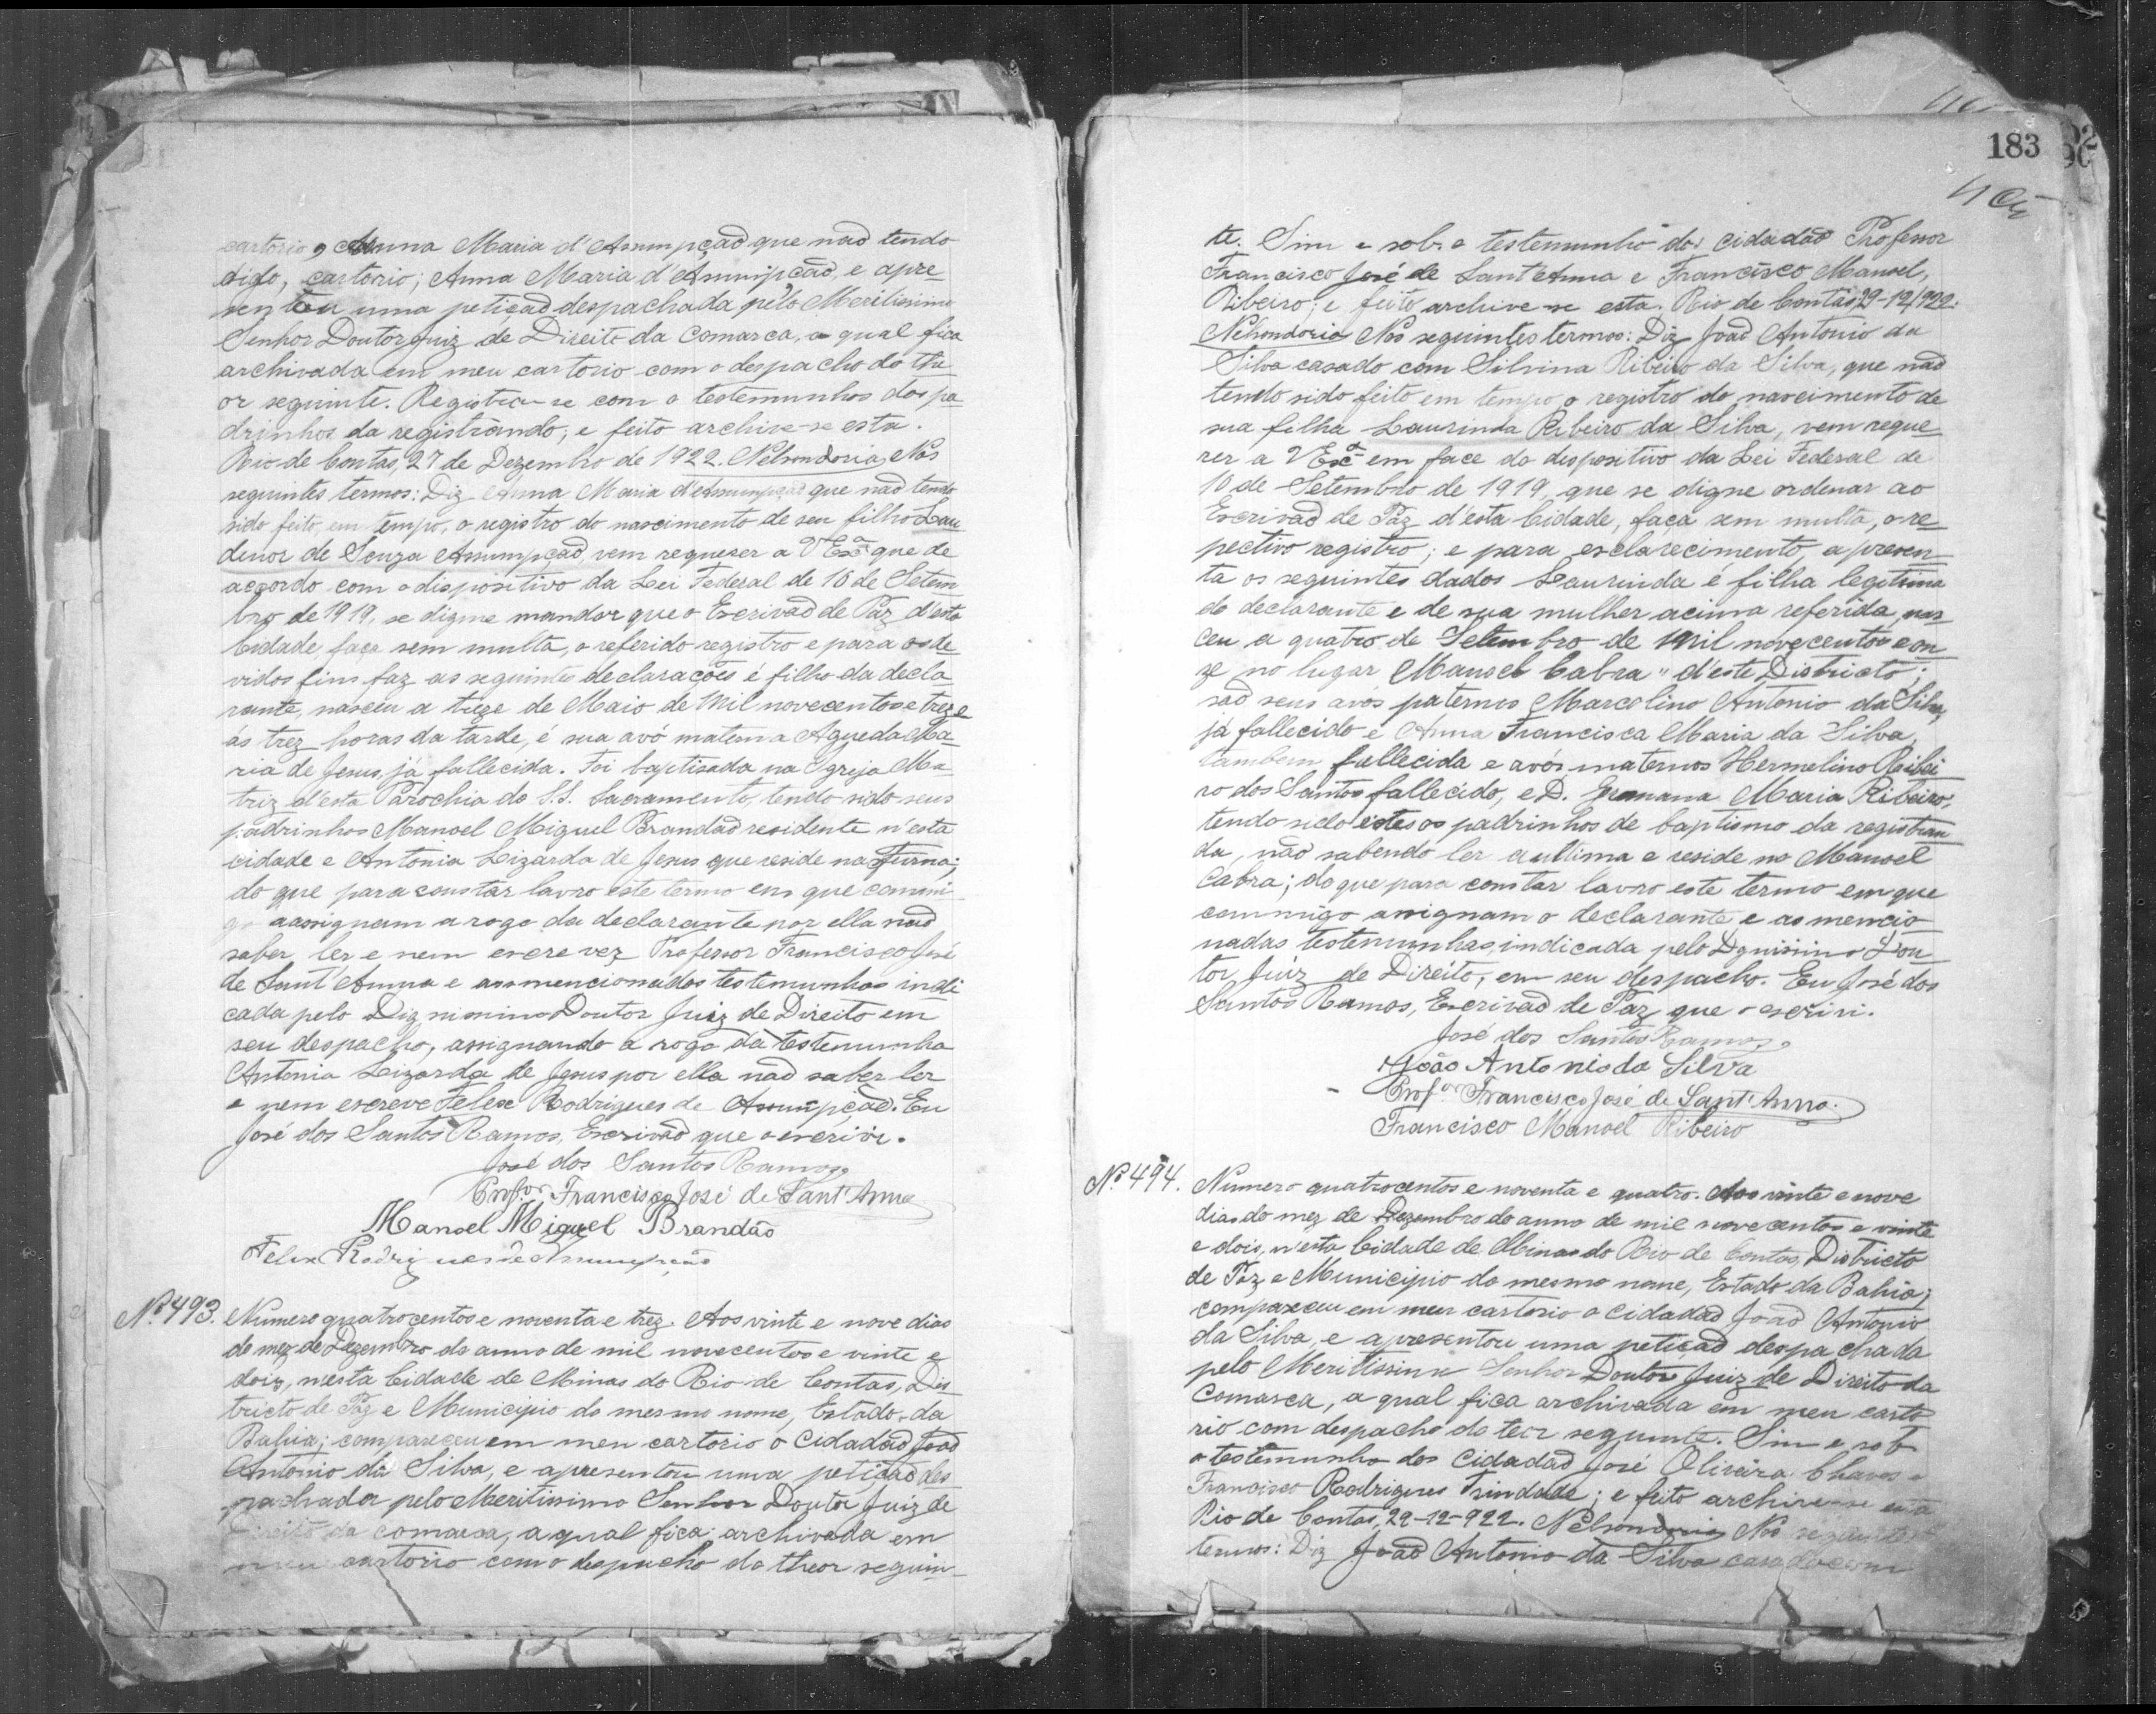 cartorio, Anna Maria d'Assumpção que não tendo
sido, cartorio; Anna Maria d'Assumpção, e apre-
sentou uma petição despachada pelo Meritissimo
Senhor Doutor Juiz de Direito da Comarca, a qual fica
archivada em meu cartorio com o despacho do the-
or seguinte. Registre-se com o testemunhos dos pa-
drinhos da registrando; e feito archive-se esta.
Rio de Contas, 27 de Dezembro de 1922. Nelsondoria, Nos
seguintes termos: Diz Anna Maria d'Assumpção que não tendo
sido feito, em tempo, o registro do nascimento de seu filho Lau-
denor de Souza Assumpção, vem requerer a V Exª que de
accordo com o dispositivo da Lei Federal de 10 de Setem-
bro de 1919, se digne mandar que o Escrivão de Paz d'esta
Cidade, faça sem multa, o referido registro e para os de-
vidos fins faz as seguintes declarações é filho da decla-
rante, nasceu a treze de Maio de mil novecentos e treze
ás trez horas da tarde, é sua avó materna Agueda Ma-
ria de Jesus, já fallecida. Foi baptisada na Igreja Ma-
triz d'esta Parochia do S.S. Sacramento, tendo sido seus
padrinhos Manoel Miguel Brandão residente n'esta
cidade e Antonia Lizarda de Jesus que reside na Furna;
do que para constar lavro este termo em que commi-
go assignam a rogo da declarante por ella não
saber ler e nem escrever Professor Francisco José
de Sant'Anna e as mencionadas testemunhas indi-
cada pelo Dignissimo Doutor Juiz de Direito em
seu despacho, assignando a rogo da testemunha
Antonia Lizarda de Jesus por ella não saber ler
e nem escreve Felex Rodrigues de Assumpção. Eu
José dos Santos Ramos, Escrivão que o escrivi.
José dos Santos Ramos.
Profºr Francisco José de Sant'Anna
Manoel Miguel Brandão
Felex Rodrigues de Assumpção
Nº 493. Numero quatrocentos e noventa e trez. Aos vinte e nove dias
do mez de Dezembro do anno de mil novecentos e vinte e
dois, nesta Cidade de Minas do Rio de Contas, Dis-
tricto de Paz e Municipio do mesmo nome, Estado da
Bahia; compareceu em meu cartorio o cidadão João
Antonio da Silva, e apresentou uma petição des-
pachada pelo Meritissimo Senhor Doutor Juiz de
Direito da comarca, a qual fica archivada em
meu cartorio com o despacho do theor seguin-
183
te. Sim e sob o testemunho dos cidadão Professor
Francisco José de Sant'Anna e Francisco Manoel,
Ribeiro; e feito archive-se esta. Rio de Contas, 29-12/922.
Nelsondoria Nos seguintes termos: Diz João Antonio da
Silva casado com Silvina Ribeiro da Silva, que não
tendo sido feito em tempo o registro do nascimento de
sua filha Laurinda Ribeiro da Silva, vem reque-
rer a V Excª em face do dispositivo da Lei Federal de
10 de Setembro de 1919, que se digne ordenar ao
Escrivão de Paz d'esta Cidade, faça sem multa, o re-
pectivo registro; e para esclarecimento, apresen-
ta os seguintes dados Laurinda é filha legitima
do declarante e de sua mulher acima referida, nas-
ceu a quatro de Setembro de mil novecentos e on-
ze no lugar "Manoel Cabra" d'este Districto;
são seus avós paternos Marcolino Antonio da Silva,
já fallecido e Anna Francisca Maria da Silva,
tambem fallecida e avós maternos Hermelino Ribei-
ro dos Santos fallecido, e D. Germana Maria Ribeiro,
tendo sido estes os padrinhos de baptismo da registran-
da, não sabendo ler a ultima e reside no Manoel
Cabra; do que para constar lavro este termo em que
commigo assignam o declarante e as mencio-
nadas testemunhas, indicada pelo Dgnissimo Dou-
tor Juiz de Direito, em seu despacho. Eu José dos
Santos Ramos, Escrivão de Paz que o escrivi.
José dos Santos Ramos.
João Antonio da Silva
Profºr Francisco José de Sant'Anna.
Francisco Manoel Ribeiro
Nº 494. Numero quatrocentos e noventa e quatro. Aos vinte e nove
dias do mez de Dezembro do anno de mil novecentos e vinte
e dois, n'esta Cidade de Minas do Rio de Contas, Districto
de Paz e Municipio do mesmo nome, Estado da Bahia;
compareceu em meu cartorio o cidadão João Antonio
da Silva, e apresentou uma petição despachada
pelo Meritissimo Senhor Doutor Juiz de Direito da
Comarca, a qual fica archivada em meu carto-
rio com despacho do teor seguinte. Sim e sob
o testemunho dos cidadão José Oliveira Chaves e
Francisco Rodrigues Trindade; e feito archive-se esta
Rio de Contas, 29-12-922. Nelsondoria Nos seguintes
termos: Diz João Antonio da Silva casado com